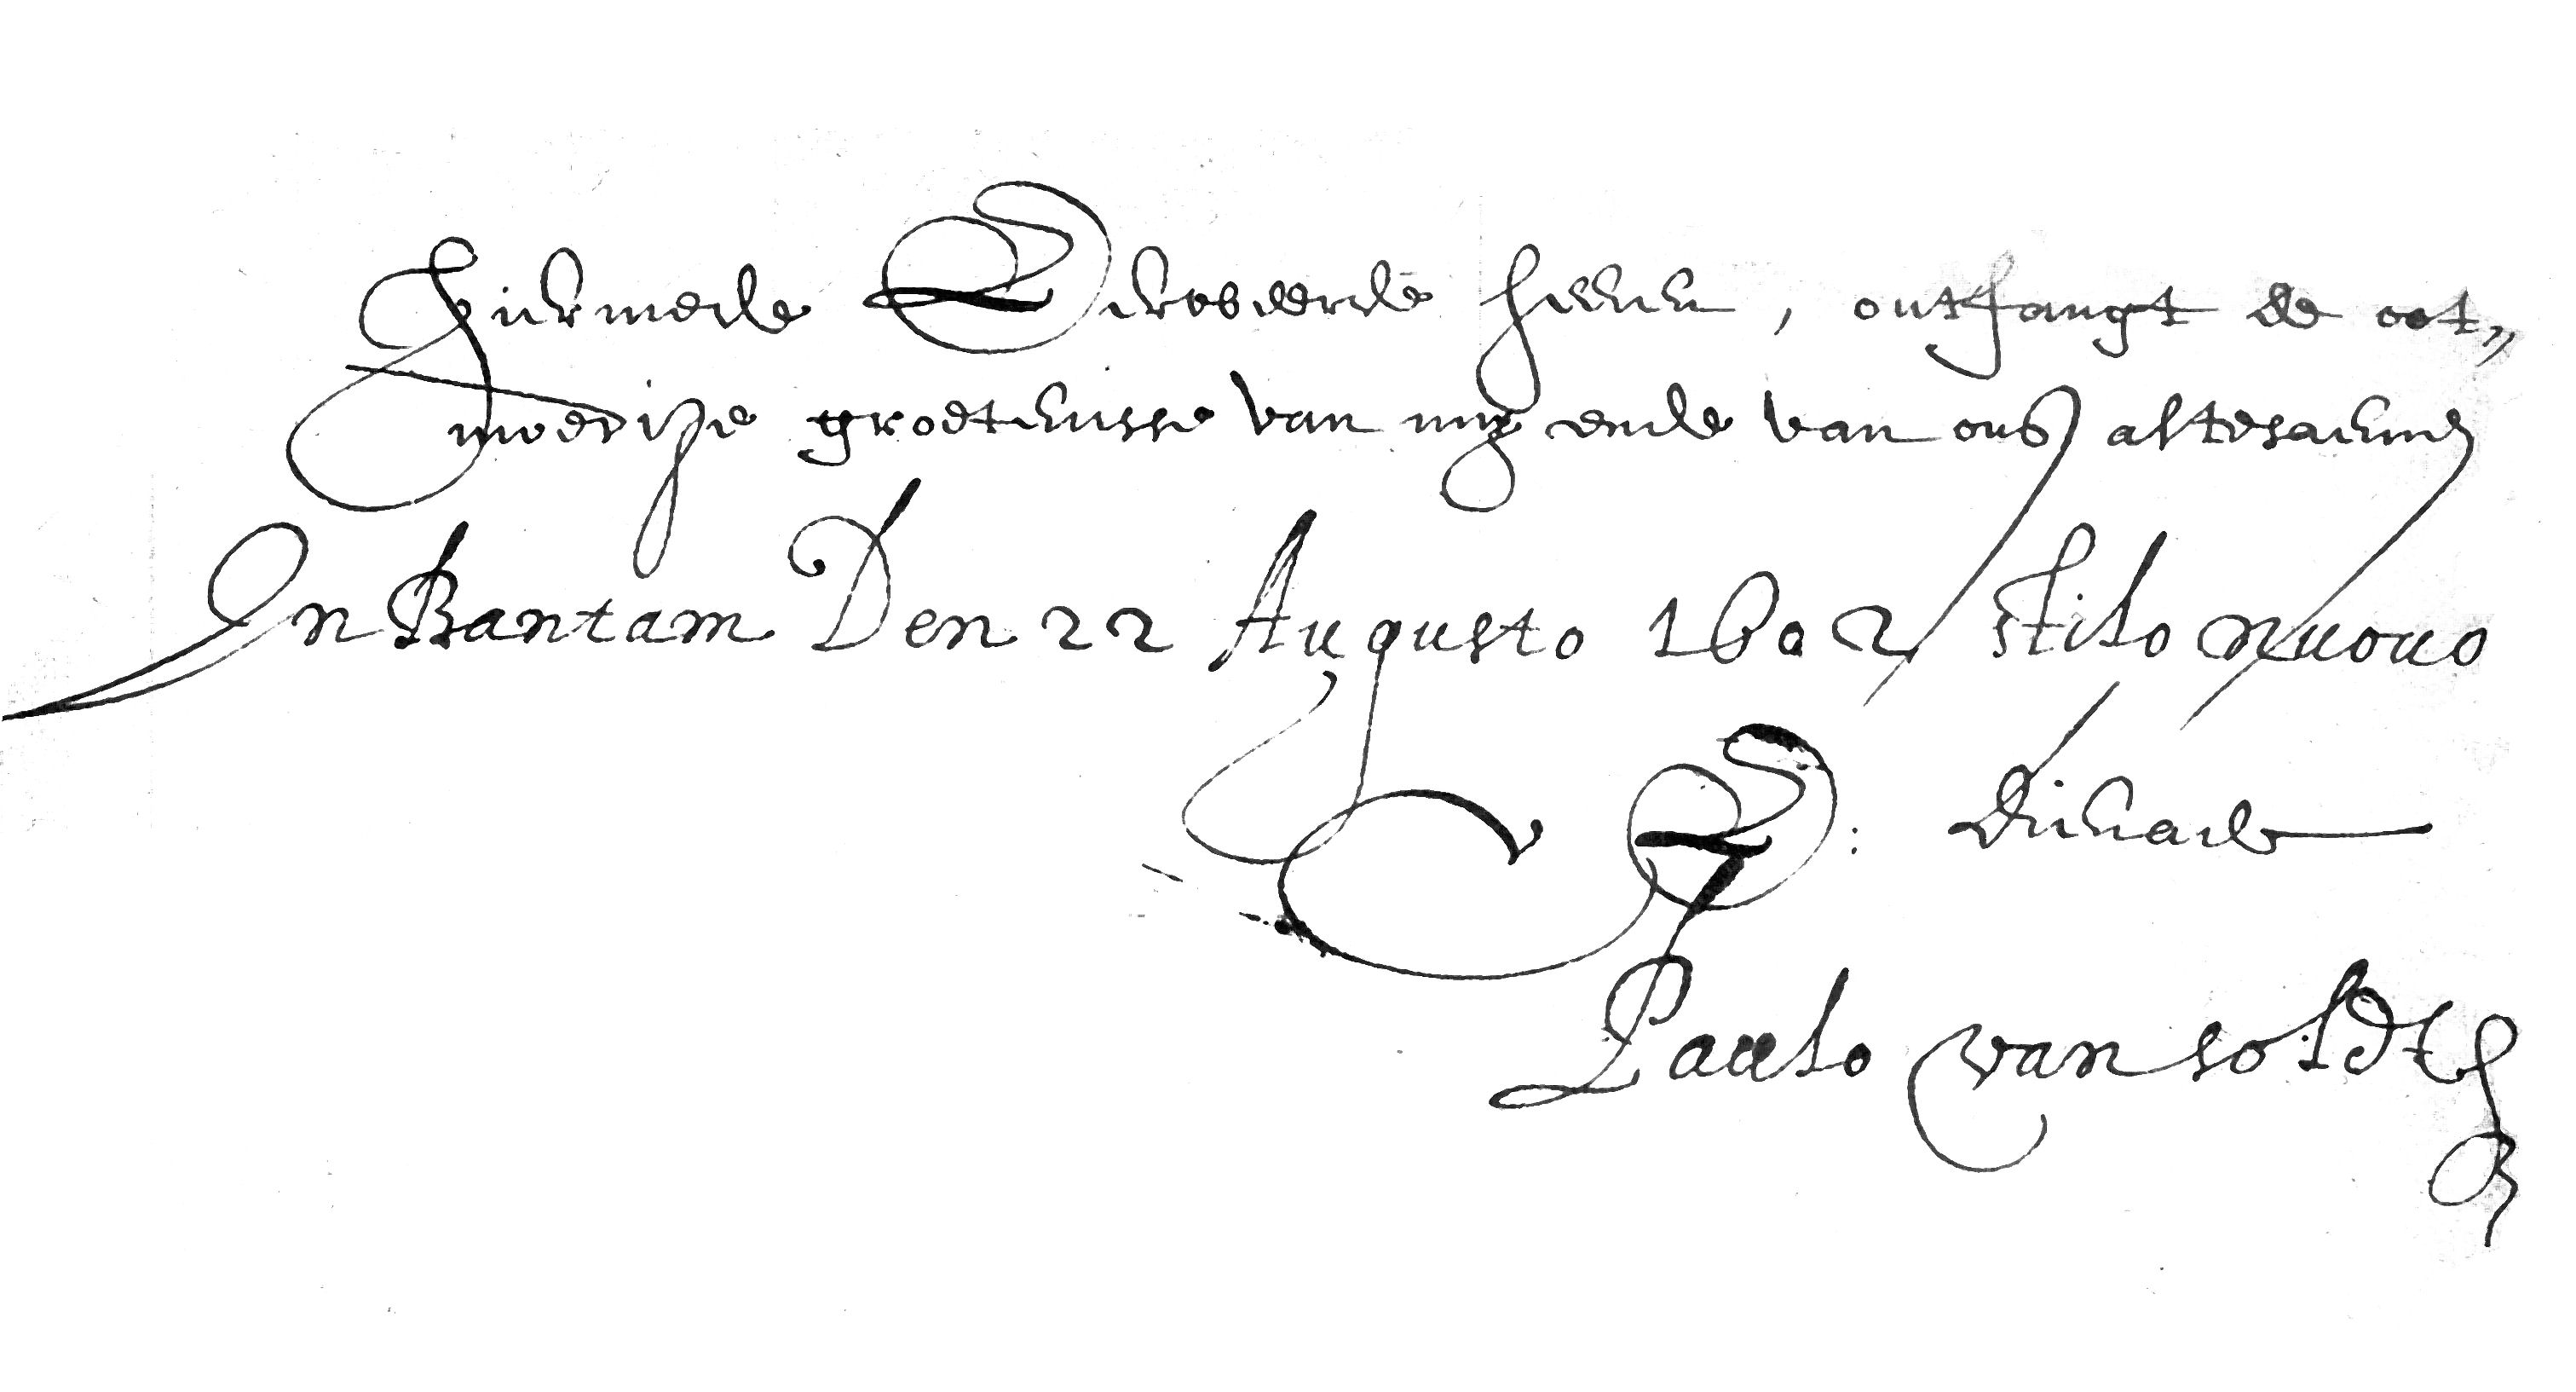 Hiermede Eersweerde heeren, ontfangt de oot„
moedige groetenisse van mij ende van ons altesamen
In Bantam Den 22 Augusto 1602 stilo nuovo
V E: dienaer
Paulo van soldt